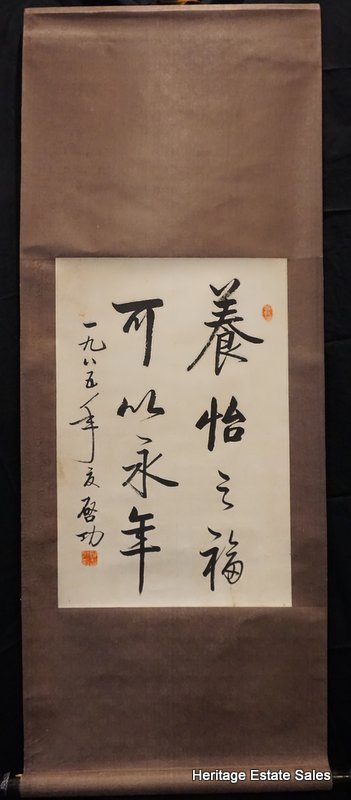 養怡之福
可以永年
一九八五年夏啓功
Heritage Estate Sales